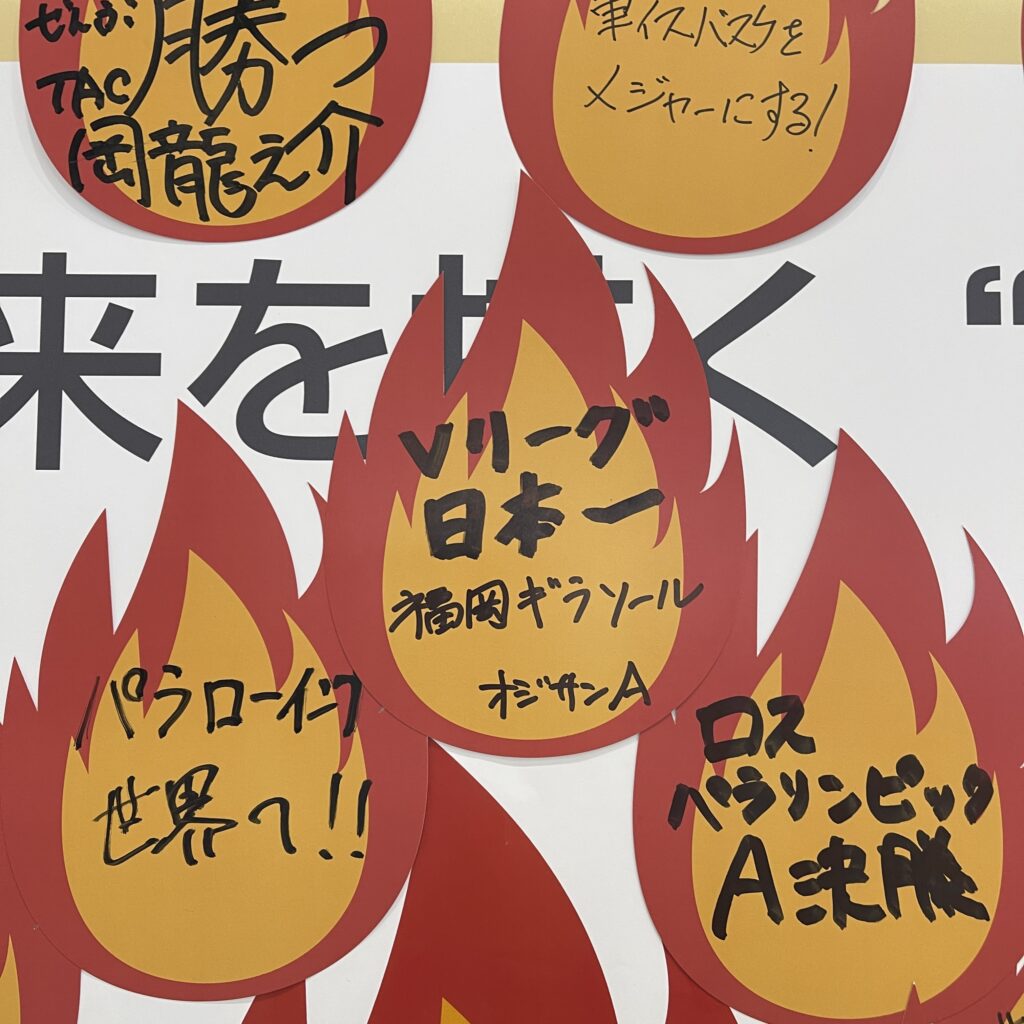 ぜんぶ勝つ
TAC
岡龍之介
車イスバスケを
メジャーにする!
来を
く “
Vリーグ
日本一
福岡ギラソール
オジサンA
パラローイング
世界へ!!
ロス
パラリンピック
A決勝